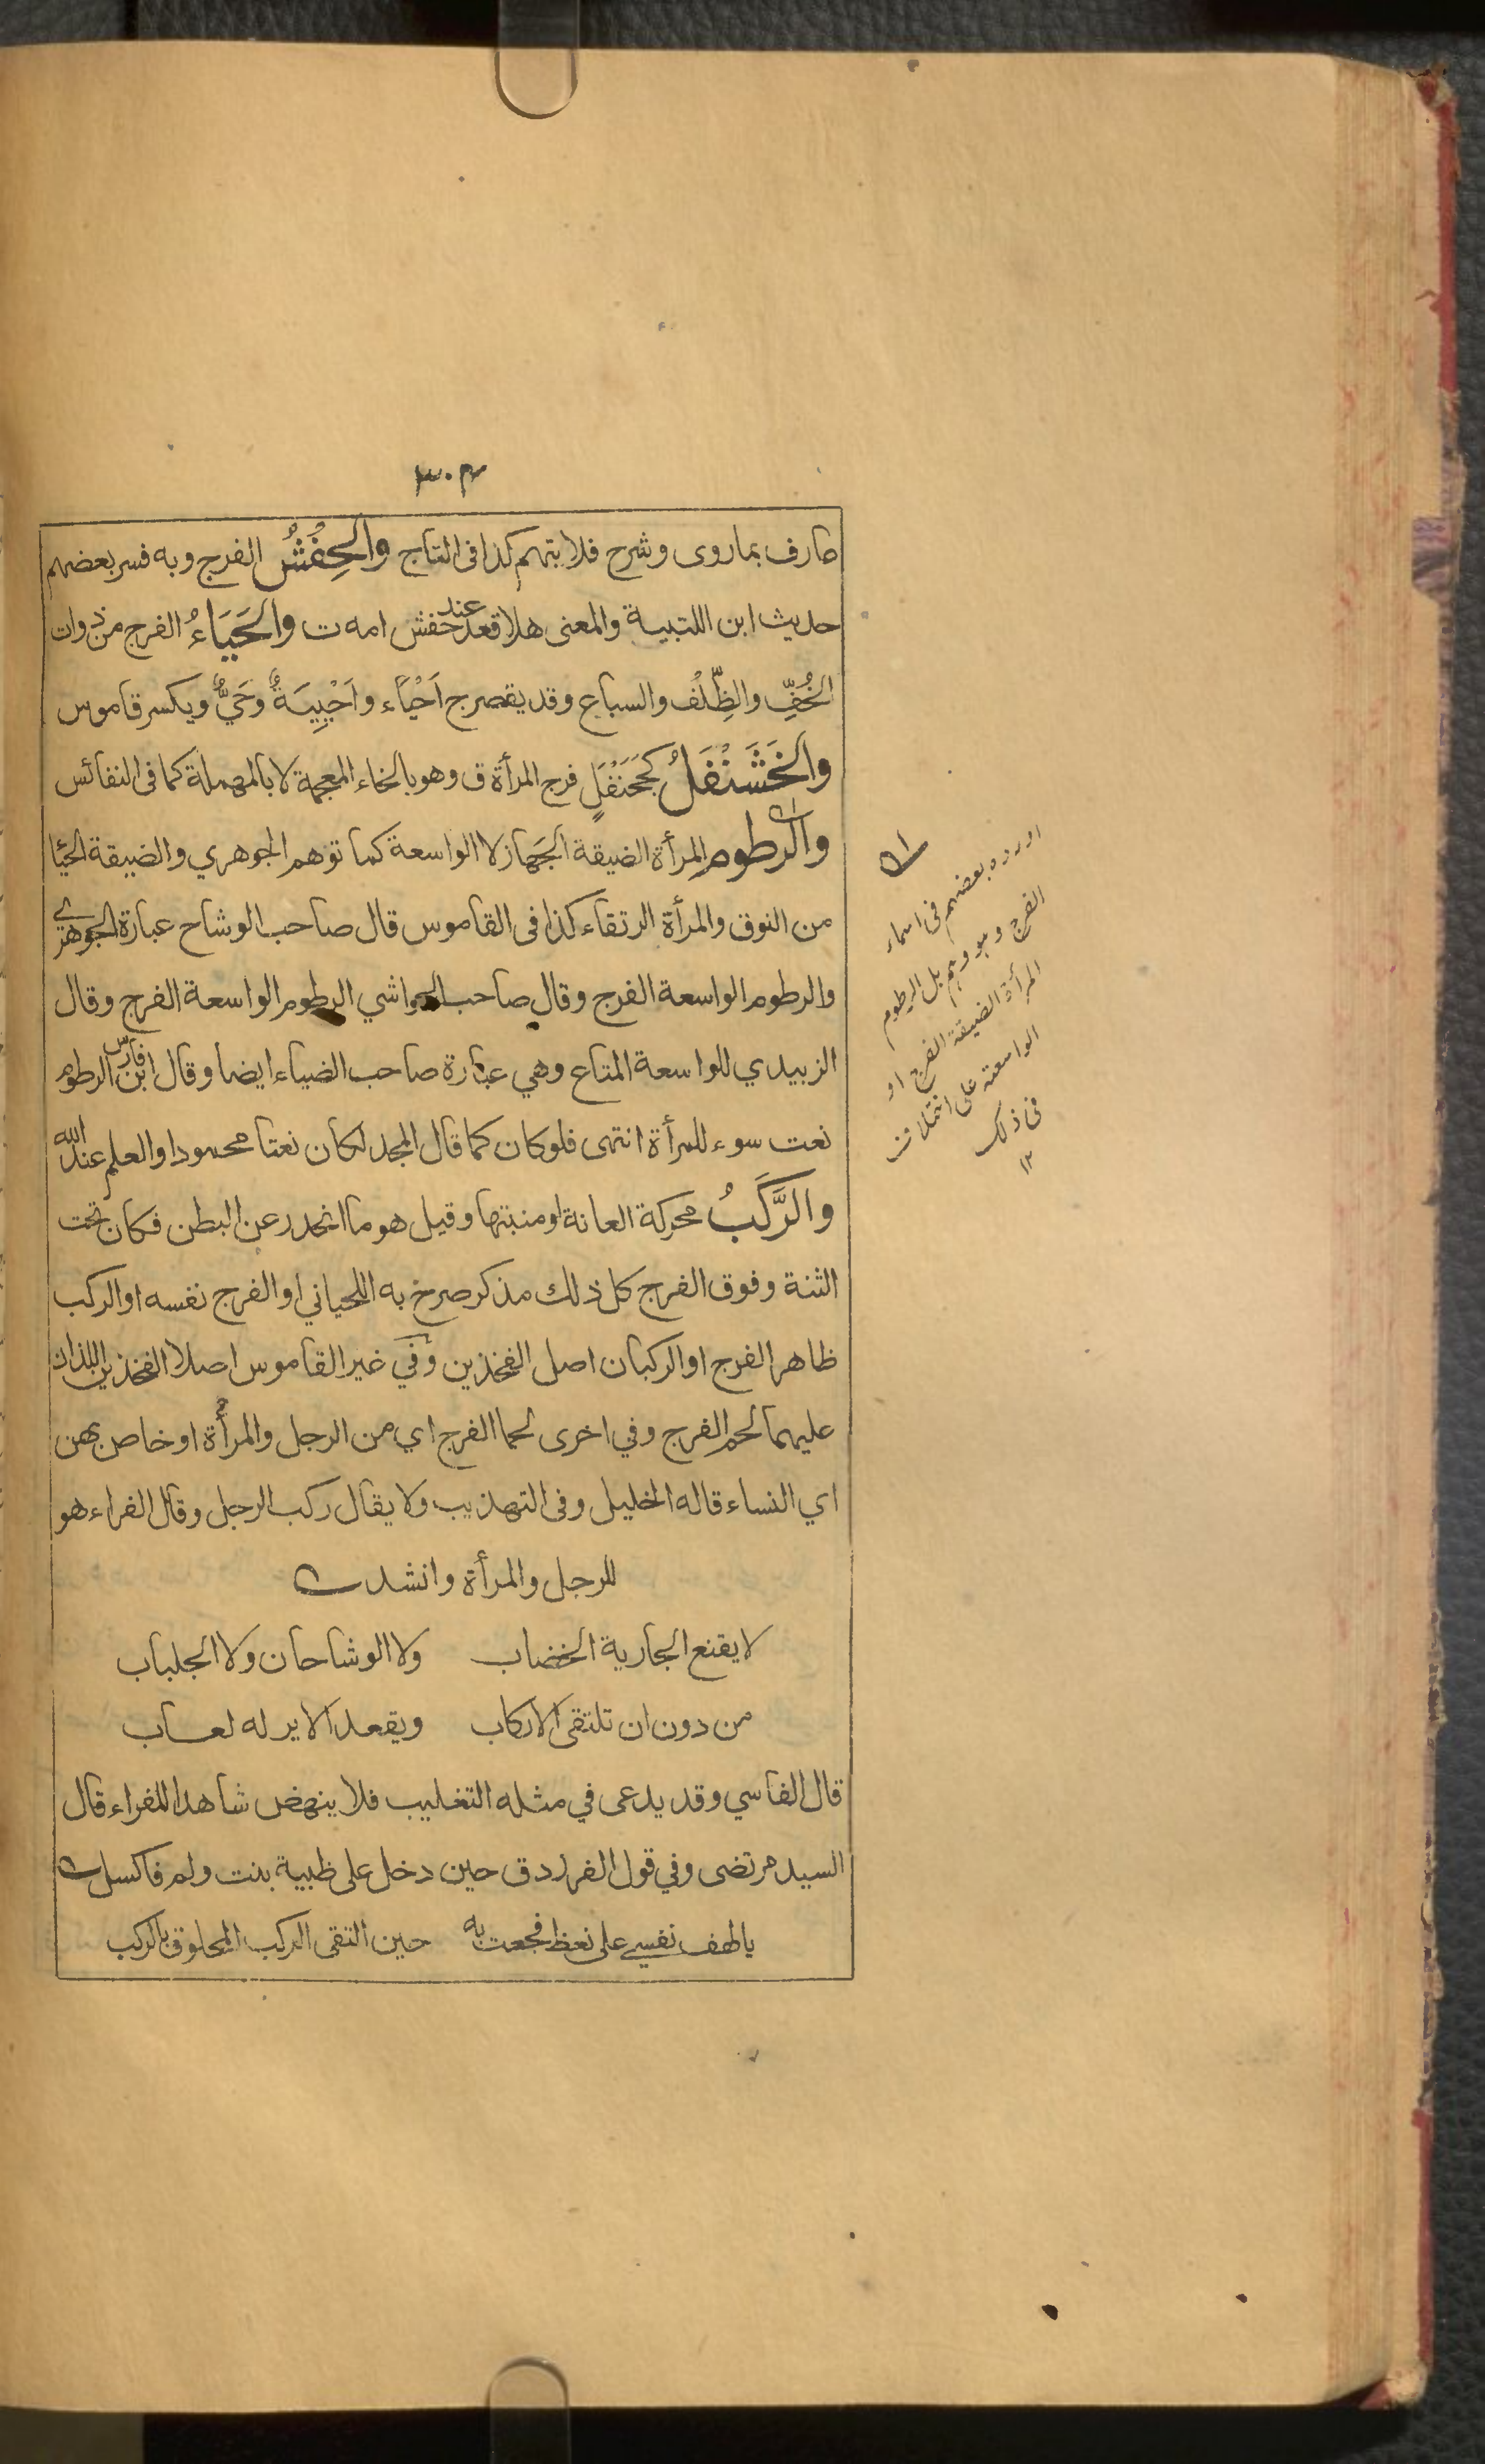 ٣٠٢
عارف بماروى وشرح فلا يتهم كذا فى التاج والحِفْشُ الفرج وبه فسر بعضهم
حديث ابن اللتبية والمعنى هلا قعد عند حفش امه ت والحَيَاءُ الفرج من ذوات
الخُفِّ والظِّلْفِ والسباع وقد يقصر ج اَحْيَاء واَحْيِيَةٌ وحَيٌّ ويكسر قاموس
والخَشَنْفَلُ كجَحَنْفَلٍ فرج المرأة ق وهو بالخاء المعجمة لا بالمهملة كما فى النفائس
والرطوم المرأة الضيقة الجَهاز لا الواسعة كما توهم الجوهري والضيقة الحيا
من النوق والمرأة الرتقاء كذا فى القاموس قال صاحب الوشاح عبارة الجوهري
والرطوم الواسعة الفرج وقال صاحب الحواشي الرطوم الواسعة الفرج وقال
الزبيدي للواسعة المتاع وهي عبارة صاحب الضياء ايضا وقال ابن فارس الرطوم
نعت سوء للمرأة انتهى فلو كان كما قال المجد لكان نعتا محمودا والعلم عند الله
والرَّكَبُ محركة العانة او منبتها وقيل هو ما انحدر عن البطن فكان تحت
الثنة وفوق الفرج كل ذلك مذكر صرح به اللحياني او الفرج نفسه او الركب
ظاهر الفرج او الركبان اصل الفخذين وفي غير القاموس اصلا الفخذين اللذان
عليهما لحم الفرج وفي اخرى لحما الفرج اي من الرجل والمرأة او خاص بهن
اي النساء قاله الخليل وفى التهذيب ولا يقال ركب الرجل وقال الفراء هو
للرجل والمرأة وانشد
لا يقنع الجارية الخضاب ولا الوشاحان ولا الجلباب
من دون ان تلتقى الاركاب ويقعد الاير له لعاب
قال الفاسي وقد يدعى في مثله التغليب فلا ينهض شاهدا للفراء قال
السيد مرتضى وفي قول الفرزدق حين دخل على ظبية بنت ولم فاكسل
يا لهف نفسي على نعظ فجعت به حين التقى الركب المحلوق بالركب
اورده بعضهم فى اسماء
الفرج وهو وهم بل الرطوم
المرأة الضيقة الفرج او
الواسعة على اختلاف
فى ذلك
١٢